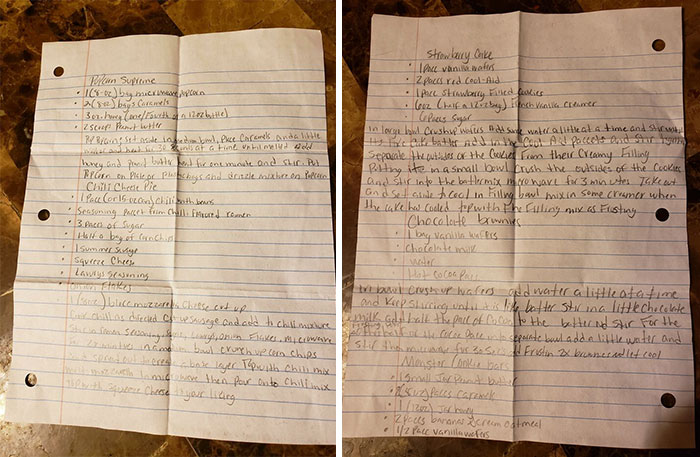 Popcorn Supreme
1 (8-oz) bag microwave popcorn
2 (8-oz) bags Caramels
3 oz honey (one/Fourth of a 12oz bottle)
2 scoops Peanut butter
Popcorn, set aside in medium bowl, Place Caramels and a little
water and heat for 30 seconds at a time until melted add
honey and peanut butter heat for one minute and stir. Put
Popcorn on Plate or and drizzle mixture on Popcorn
Chili Cheese Pie
1 Pace (or 15 oz can) chili with beans
Seasoning Packet from Chili flavored ramen
3 Paces of Sugar
Half a bag of Corn Chips
1 Summer Sausage
Squeeze Cheese
Lawrys Seasoning
Onion Flakes
1 (8oz) block mozzarella Cheese cut up
Cook chili as directed Cut up sausage and add to chili mixture
Stir in ramen seasoning, Sugar, Lawrys, onion flakes, microwave
For 2x minutes in a bowl crunch up corn chips
spread out in create a base layer Top with Chili mix
microwave then pour onto chili mix
top with squeeze cheese to your liking
Strawberry Cake
1 Pacc vanilla wafers
2 Paccs red Cool-Aid
1 Pacc Strawberry Filled Cookies
6oz (half a 12oz bag) French vanilla creamer
6 Paccs Sugar
In large bowl Crush up wafers Add some water a little at a time and stir until
its like cake batter add in the Cool Aid Paccets and Stir
Separate the outsides of the Cookies From their Creamy Filling
Putting it in a small bowl Crush the outsides of the Cookies
and Stir into the batter mix microwave for 3 minutes Take out
and set aside to cool in Filling bowl mix in some creamer when
the cake has cooled top with the Filling mix as Frosting
Chocolate brownies
1 bag vanilla wafers
Chocolate milk
water
Hot cocoa pacc
In bowl Crush up wafers add water a little at a time
and Keep Stirring until it is like batter Stir in a little chocolate
milk add half the pacc of Cocoa to the batter and Stir For the
of the Cocoa Pacc in to separate bowl add a little water and
Stir then microwave for 2x Seconds Frostin 2x brownies and let cool
Monster Cookie bars
1 Small Jar Peanut butter
2 (8oz) Paccs Caramels
1 (12oz) Jar honey
2 Paccs bananas & cream oatmeal
1/2 Pacc vanilla wafers